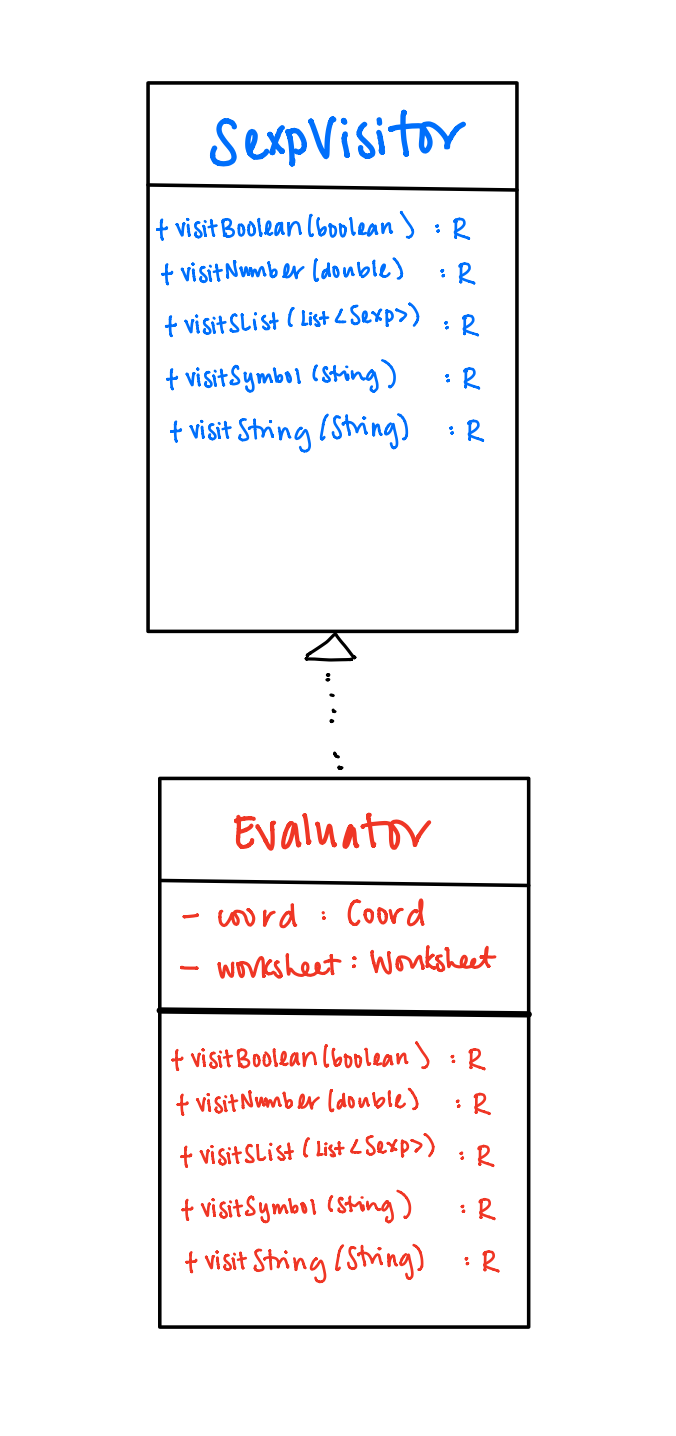 SexpVisitor
+ visitBoolean(boolean) : R
+ visitNumber(double) : R
+ visitSList(List<Sexp>) : R
+ visitSymbol(Sting) : R
+ visitString(String) : R
Evaluator
- coord : Coord
- worksheet : Worksheet
+ visitBoolean(boolean) : R
+ visitNumber(double) : R
+ visitSList(List<Sexp>) : R
+ visitSymbol(Sting) : R
+ visitString(String) : R